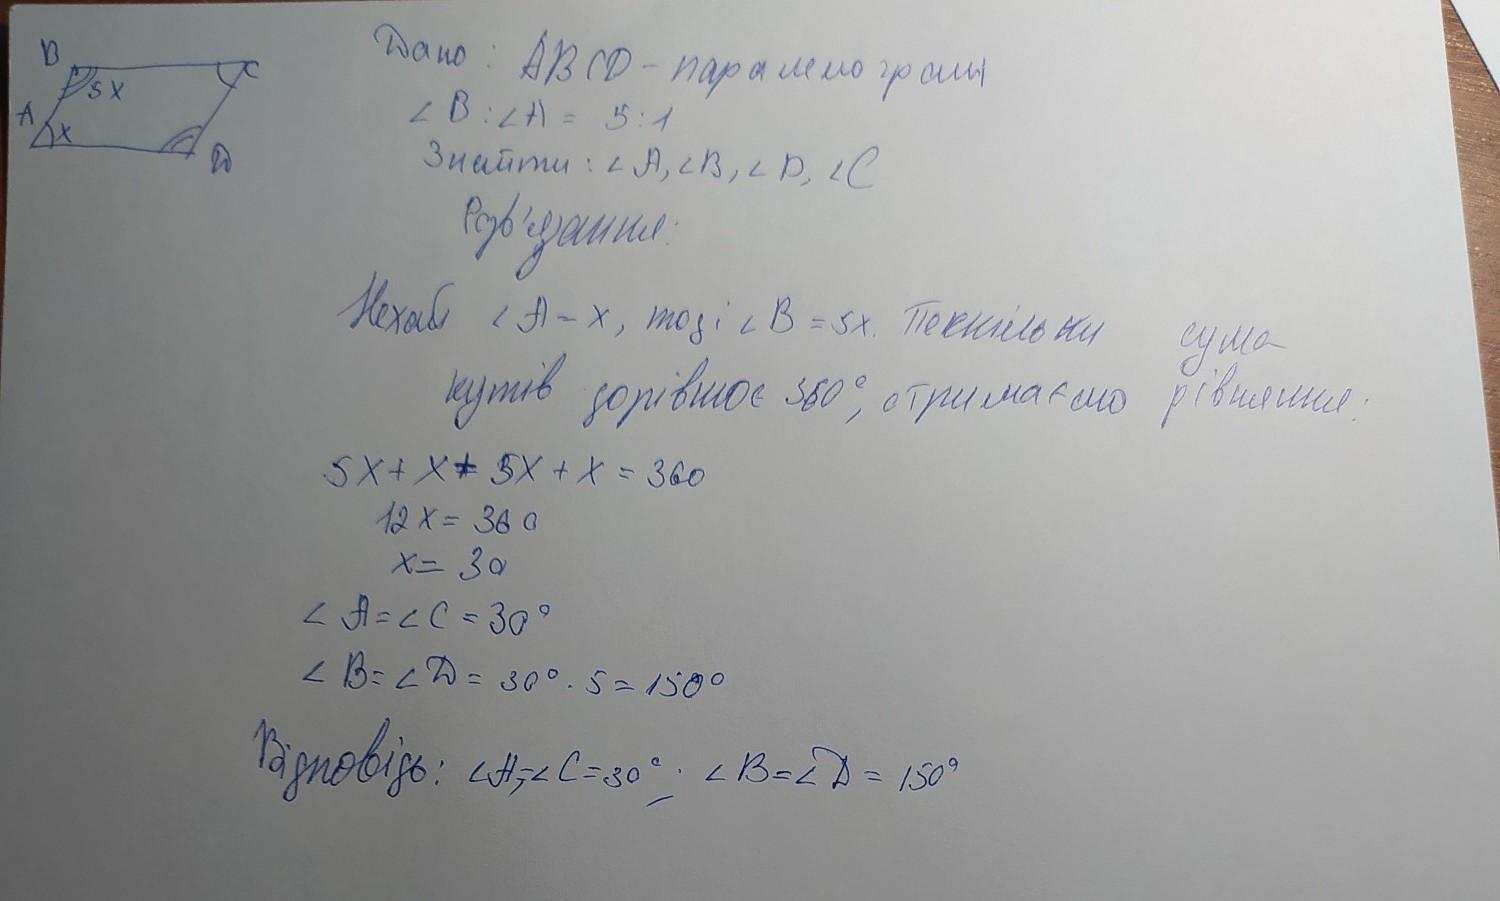 B
C
5x
A
x
D
Дано: ABCD - паралелограм
∠B:∠A = 5:1
Знайти: ∠A, ∠B, ∠D, ∠C
Розв'язання:
Нехай ∠A = x, тоді ∠B = 5x. Оскільки сума
кутів дорівнює 360°, отримаємо рівняння:
5x + x + 5x + x = 360
12x = 360
x = 30
∠A = ∠C = 30°
∠B = ∠D = 30° · 5 = 150°
Відповідь: ∠A = ∠C = 30°; ∠B = ∠D = 150°